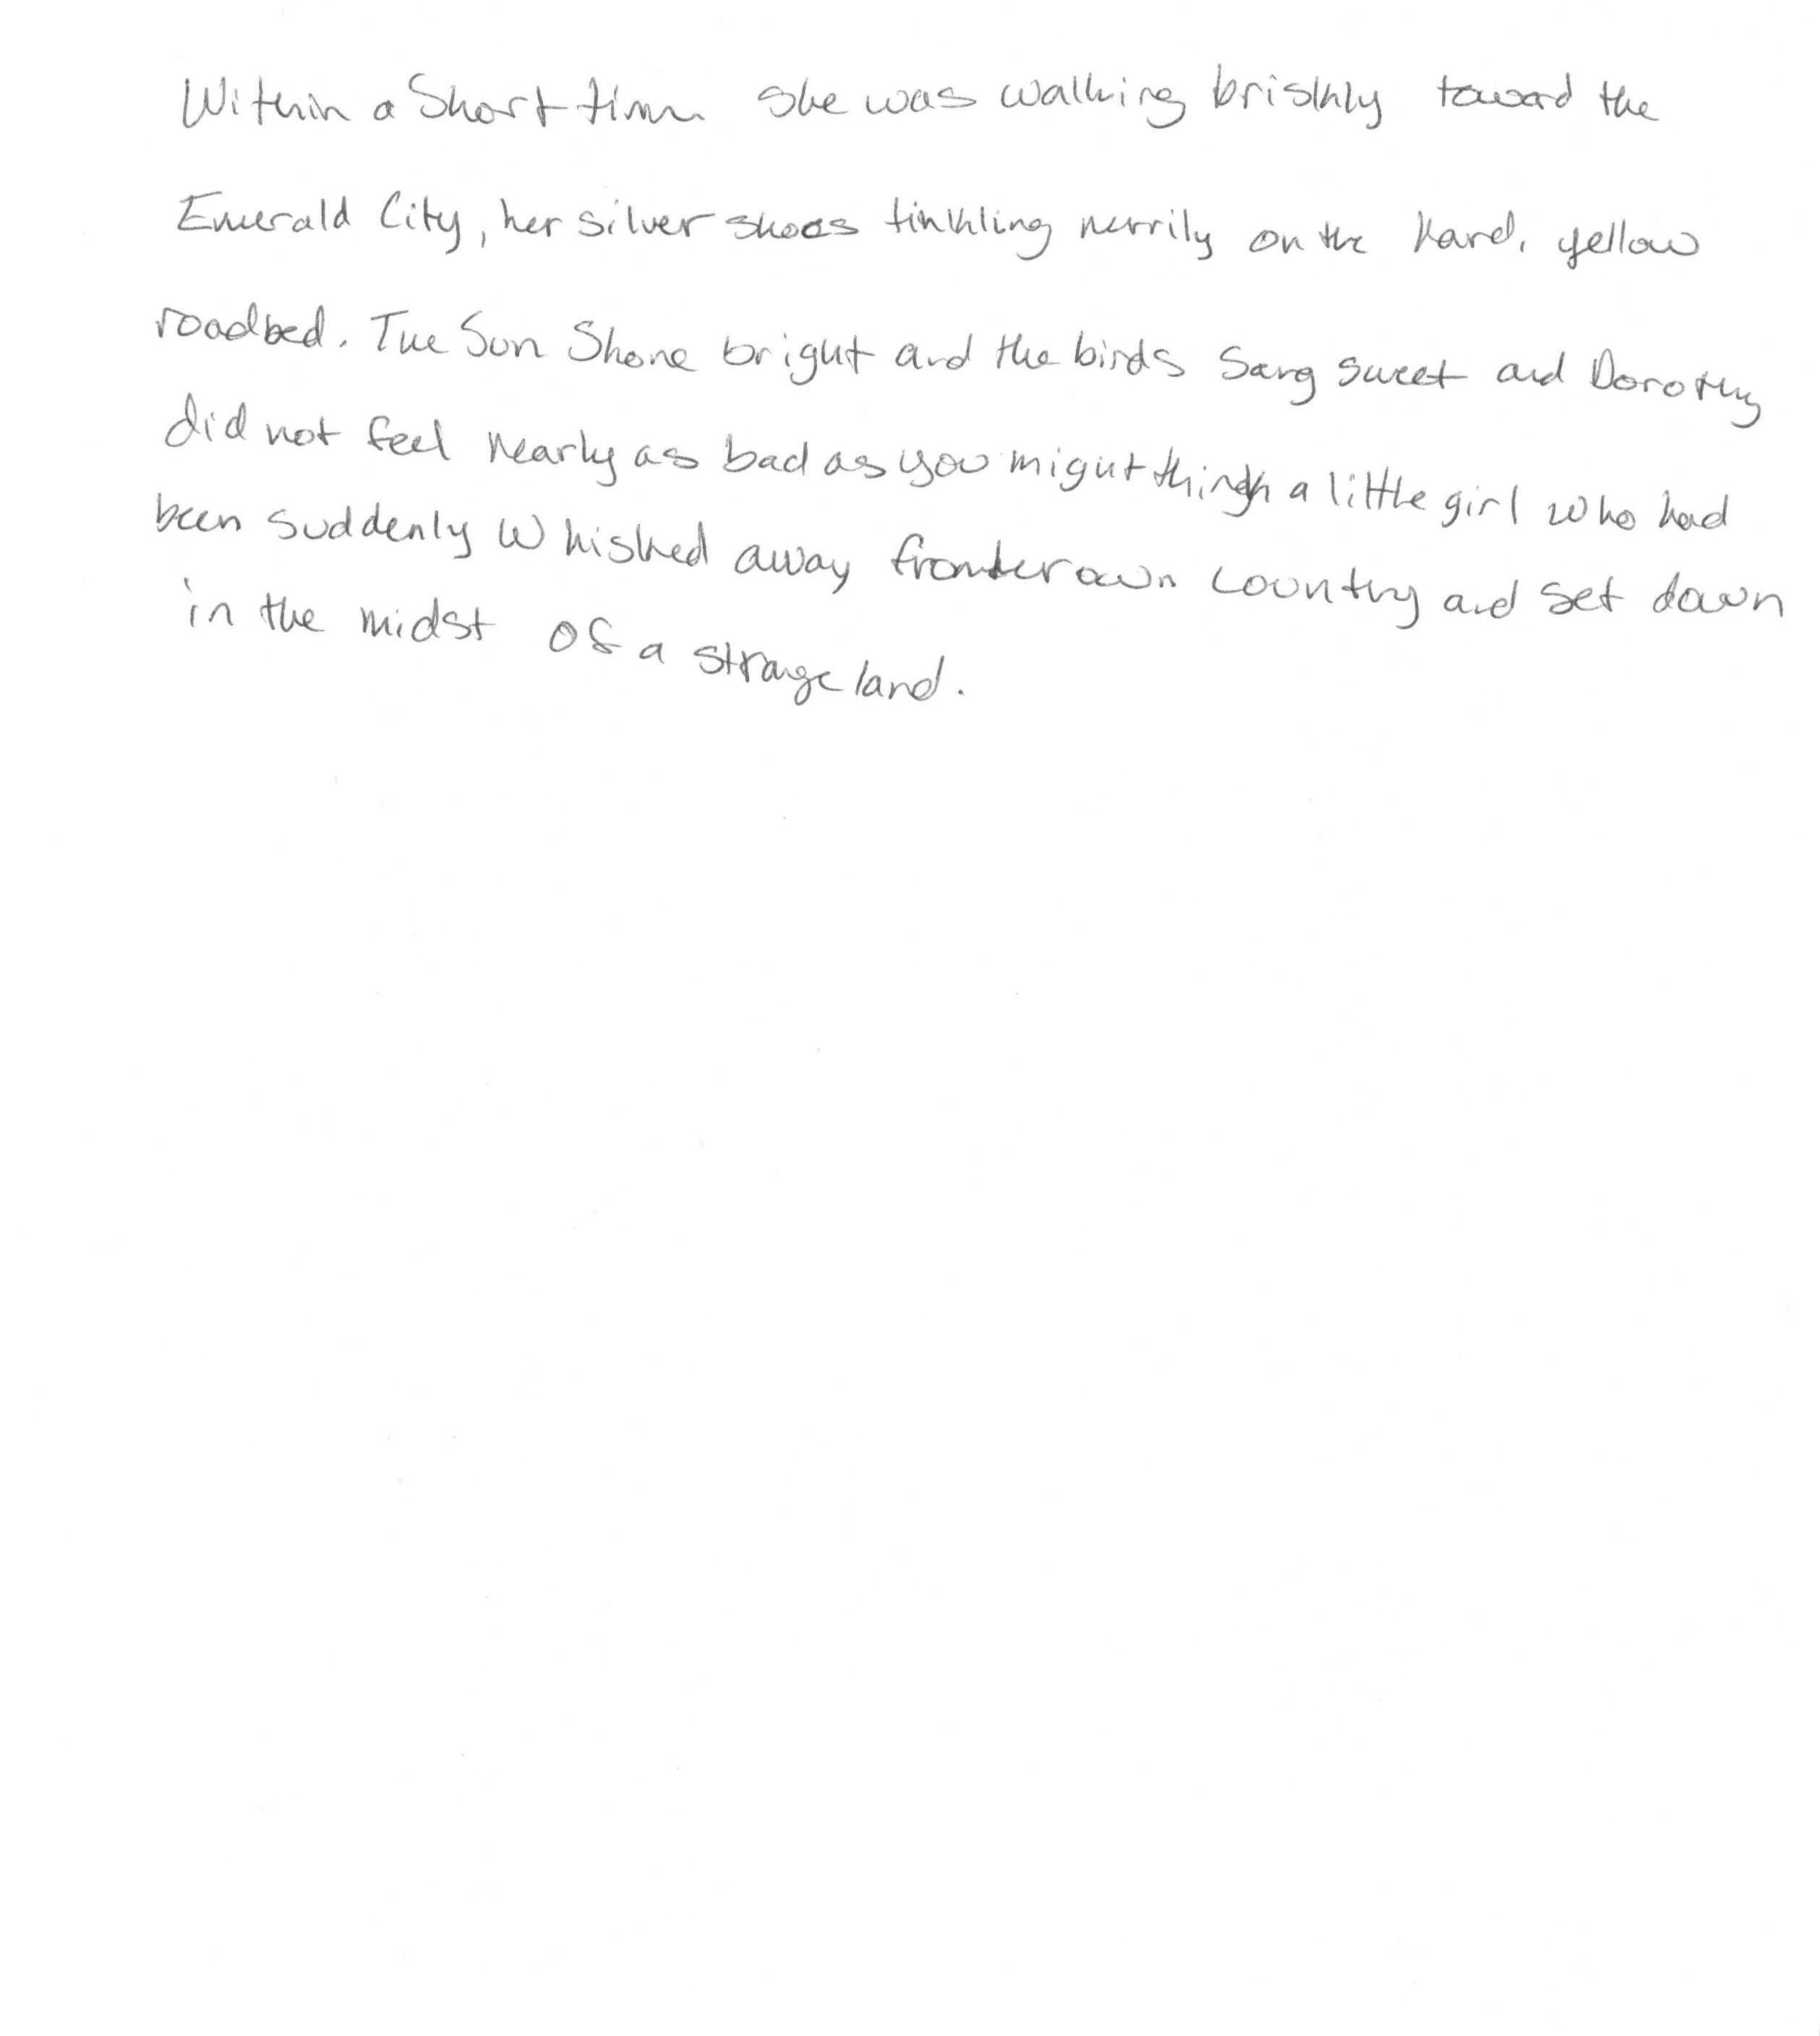 Within a Short time she was walking briskly toward the
Emerald City, her silver shoes tinkling merrily on the hard, yellow
roadbed. The Sun Shone bright and the birds Sang sweet and Dorothy
did not feel nearly as bad as you might think a little girl who had
been suddenly Whisked away from her own country and set down
in the midst of a strange land.